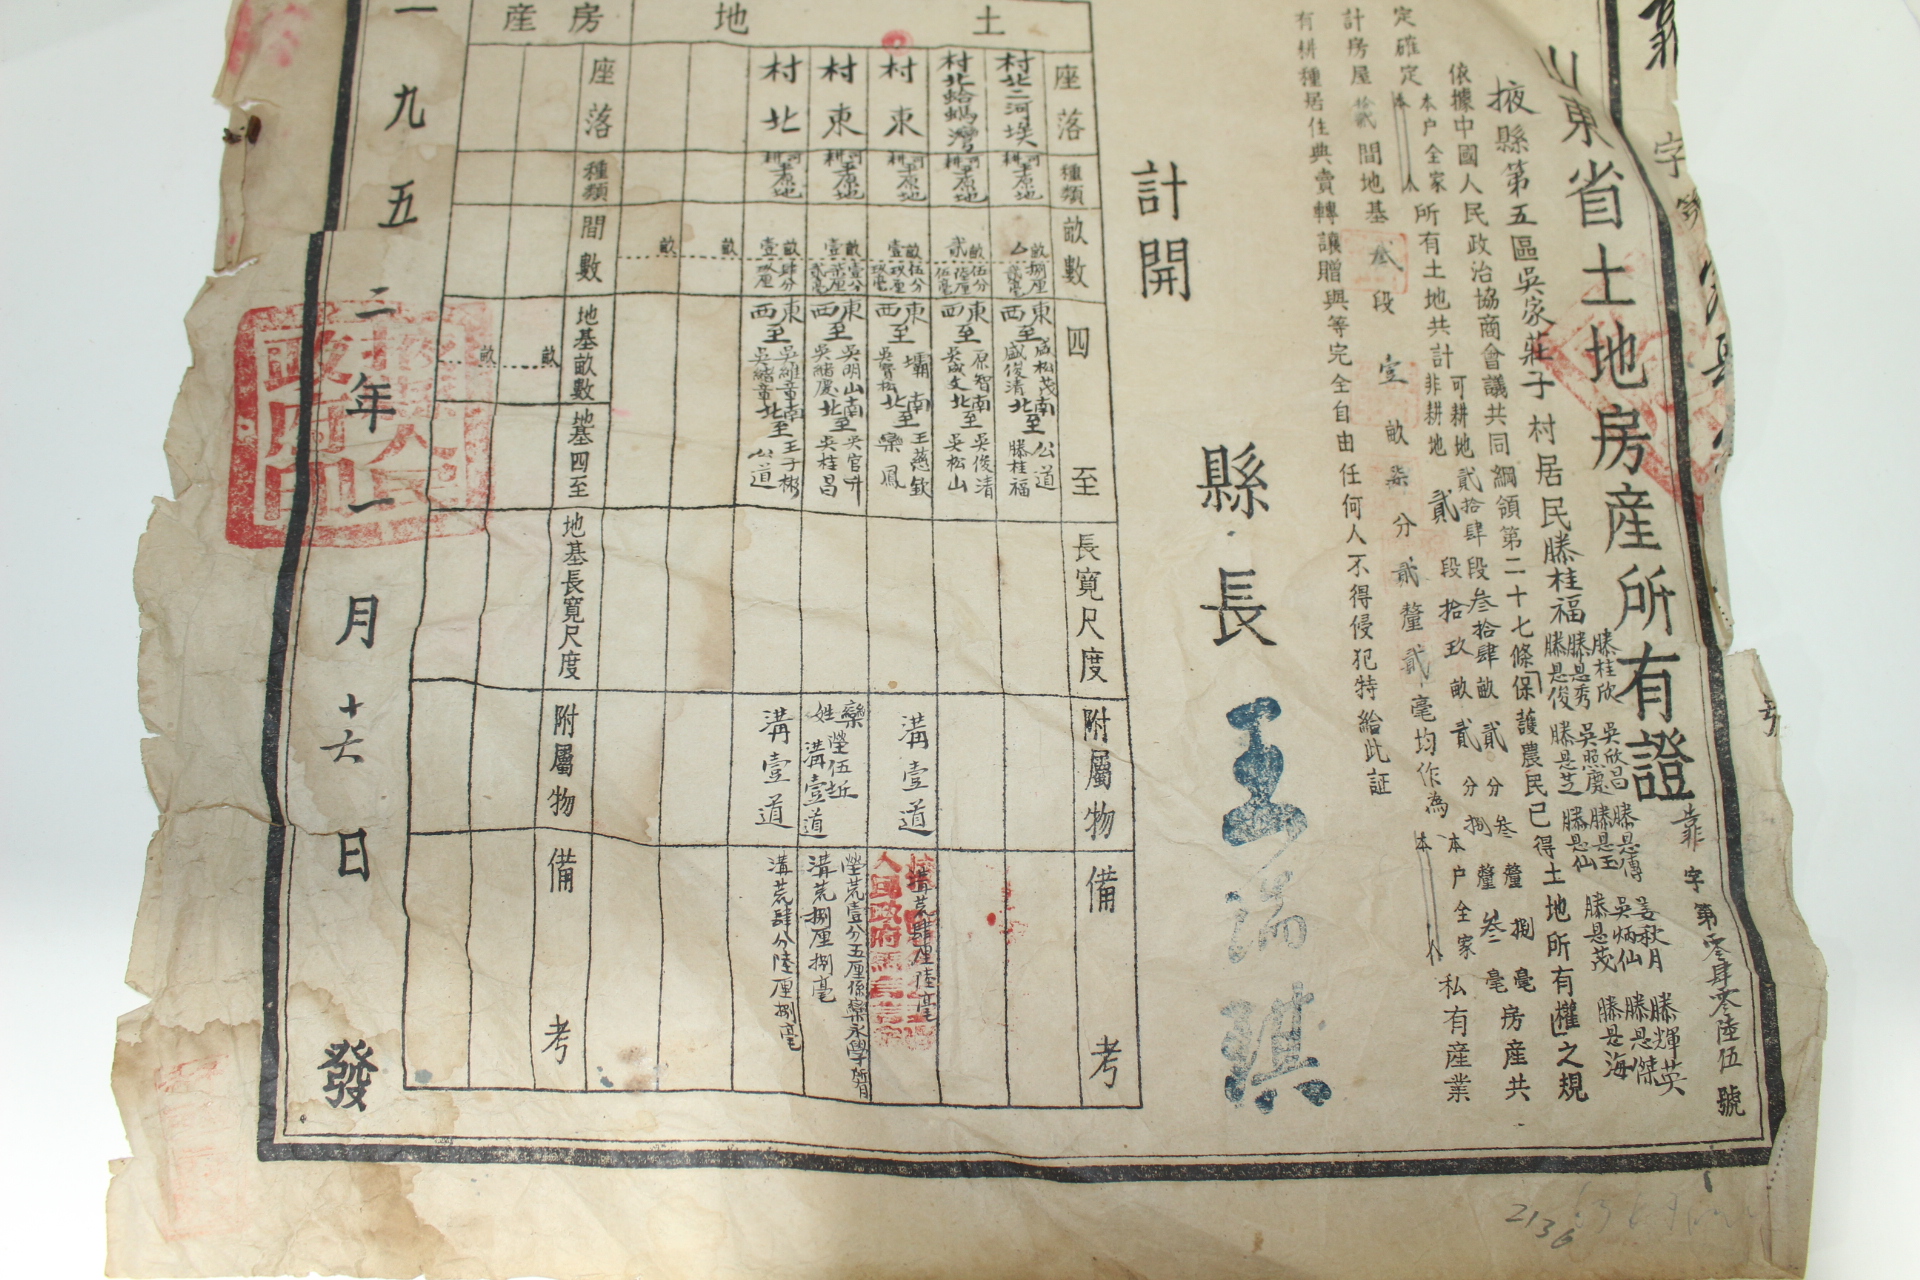 山東省土地房産所有證
靠字第零肆零陸伍號
掖縣第五區吳家莊子村居民滕桂福
滕桂欣 吳欣昌 滕是傳 姜秋月 滕輝英
滕是秀 吳照慶 滕是玉 吳炳仙 滕是傑
滕是俊 滕是芝 滕是仙 滕是茂 滕是海
依據中國人民政治協商會議共同綱領第二十七條「保護農民已得土地所有權」之規
定確定本户全家人所有土地共計可耕地貳拾肆段叁拾肆畝貳分叁釐捌毫
非耕地貳段拾玖畝貳分捌釐叁毫房産共
計房屋拾貳間地基叁段壹畝柒分貳釐貳毫均作為本户全家人私有産業
有耕種居住典賣轉讓贈與等完全自由任何人不得侵犯特給此証
計開
縣長 王瑞琪
土地
座落
種類
畝數
四至
長寬尺度
附屬物
備考
村北二河埃
河平原耕地
捌厘
東至盛松茂
西至盛俊清
南至公道
北至滕桂福
村北蛤蟆灣
河平原耕地
貳畝伍分陸厘伍毫
東至原智
西至吳成文
南至吳俊清
北至吳松山
村東
河平原耕地
壹畝伍分玖厘玖毫
東至壩
西至吳賢松
南至王慈欽
北至欒鳳
溝壹道
溝荒肆厘陸毫
村東
河平原耕地
壹畝壹分柒厘貳毫
東至吳明山
西至吳緒慶
南至吳官升
北至吳桂昌
欒姓塋伍坵
溝壹道
塋荒壹分五厘係欒永學所有
溝荒捌厘捌毫
村北
河平原耕地
壹畝肆分玖厘
東至吳維章
西至吳緒章
南至王子彬
北至公道
溝壹道
溝荒肆分陸厘捌毫
畝
畝
房産
座落
種類
間數
地基畝數
地基四至
地基長寬尺度
附屬物
備考
畝
畝
一九五二年一月十六日發
掖縣人民政府印
2136